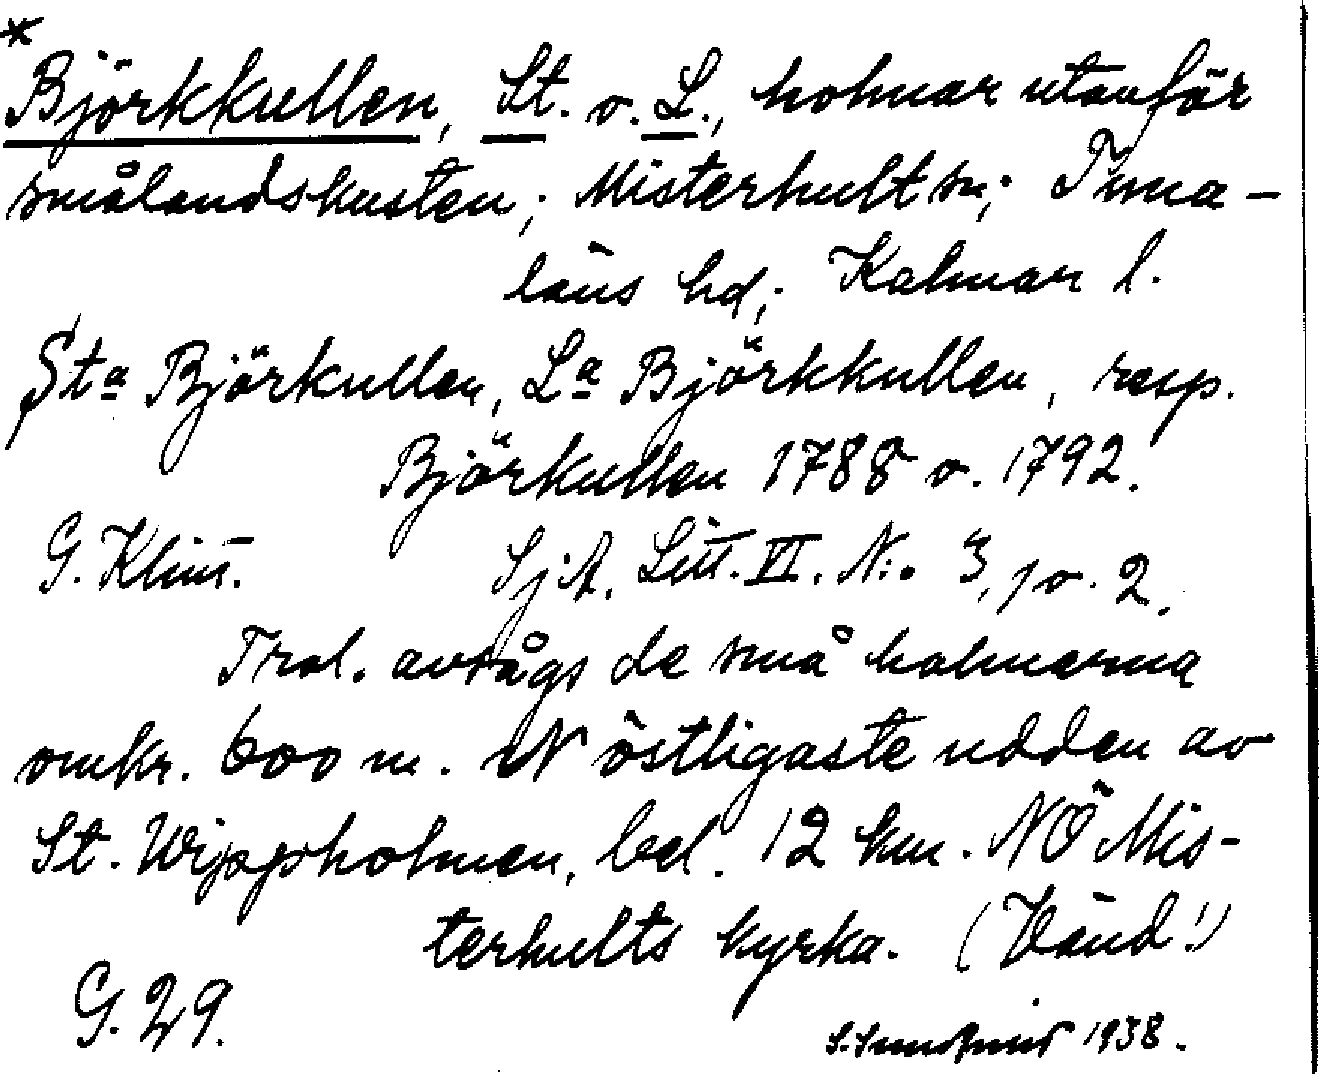 *
Björkkullen, St. o. L., holmar utanför
smålandskusten; Misterhult sn; Tuna-
läns hd; Kalmar l.
Sta Björkullen, La Björkkullen, resp.
Björkullen 1788 o. 1792.
G. Klint. SjA. Litt. VI. N:o 3, 1 o. 2.
Trol. avsågs de små holmarna
omkr. 600 m. N östligaste udden av
St. Wippholmen, bel. 12 km. NÖ Mis-
terhults kyrka. (Vänd!)
G. 29. 1938.